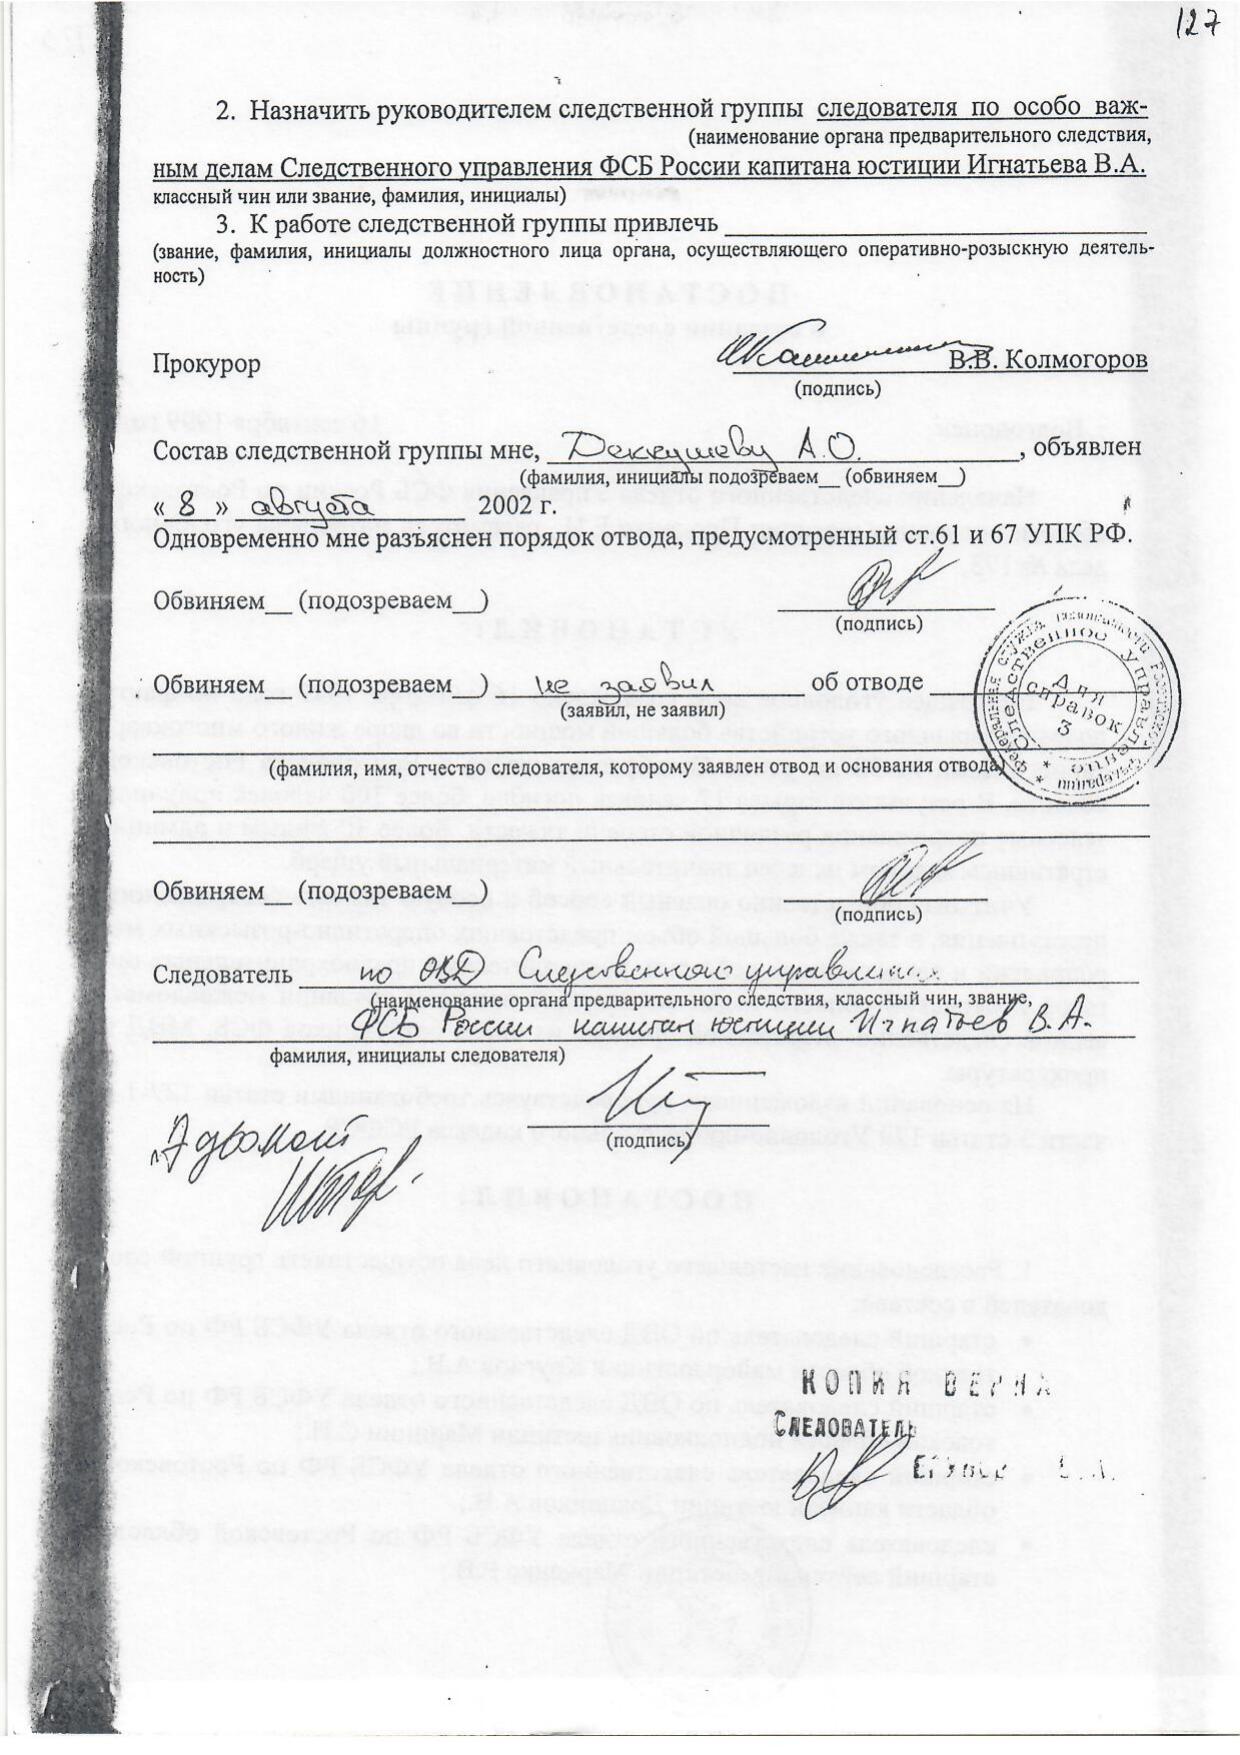 127
2. Назначить руководителем следственной группы следователя по особо важ-
(наименование органа предварительного следствия,
ным делам Следственного управления ФСБ России капитана юстиции Игнатьева В.А.
классный чин или звание, фамилия, инициалы)
3. К работе следственной группы привлечь
(звание, фамилия, инициалы должностного лица органа, осуществляющего оперативно-розыскную деятель-
ность)
Прокурор В.В. Колмогоров
(подпись)
Состав следственной группы мне, Деккушеву А.О. , объявлен
(фамилия, инициалы подозреваем__ (обвиняем__)
« 8 » августа 2002 г.
Одновременно мне разъяснен порядок отвода, предусмотренный ст.61 и 67 УПК РФ.
Обвиняем__ (подозреваем__)
(подпись)
Обвиняем__ (подозреваем__) не заявил об отводе
(заявил, не заявил)
(фамилия, имя, отчество следователя, которому заявлен отвод и основания отвода)
Федеральная служба безопасности Российской Федерации
Следственное управление
Для
справок
3
Обвиняем__ (подозреваем__)
(подпись)
Следователь по ОВД Следственного управления
(наименование органа предварительного следствия, классный чин, звание,
ФСБ России капитан юстиции Игнатьев В.А.
фамилия, инициалы следователя)
(подпись)
Адвокат
КОПИЯ ВЕРНА
СЛЕДОВАТЕЛЬ